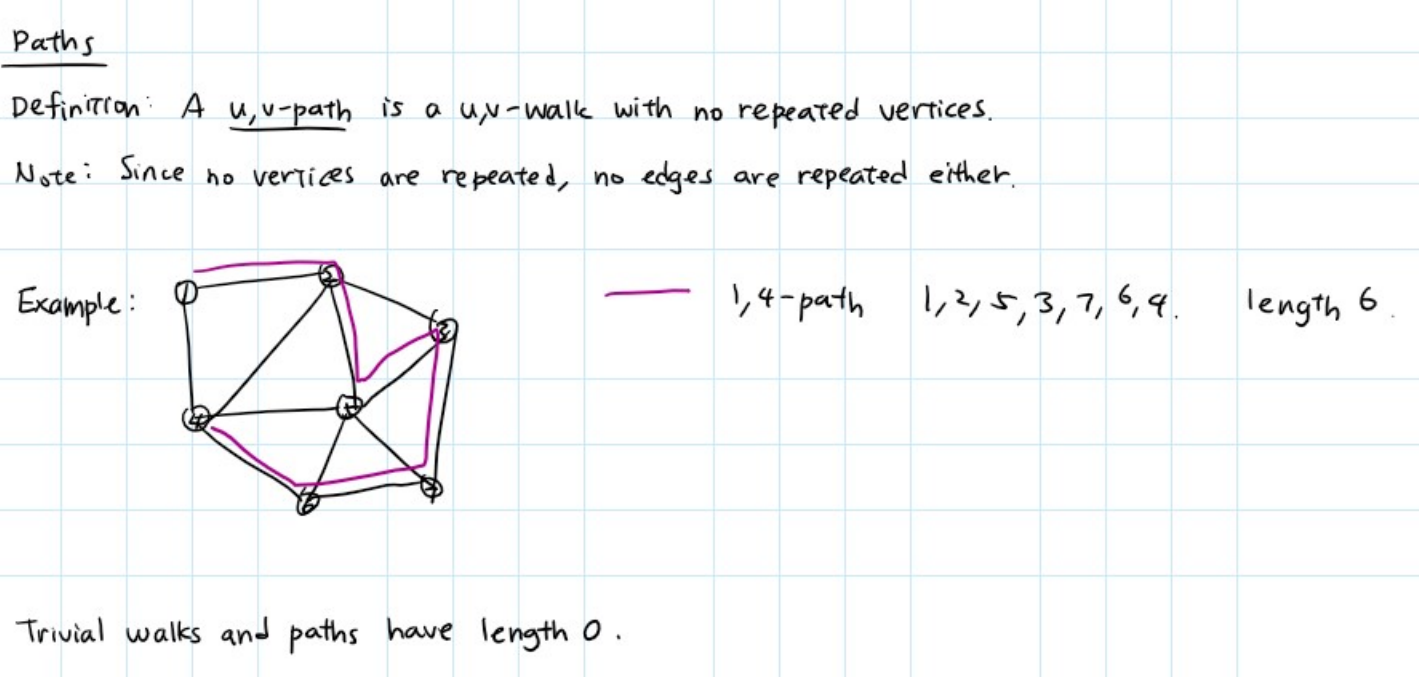 Paths
Definition: A u,v-path is a u,v-walk with no repeated vertices.
Note: Since no vertices are repeated, no edges are repeated either.
Example: 1 2 3 4 5 6 7 1,4-path 1,2,5,3,7,6,4. length 6.
Trivial walks and paths have length 0.